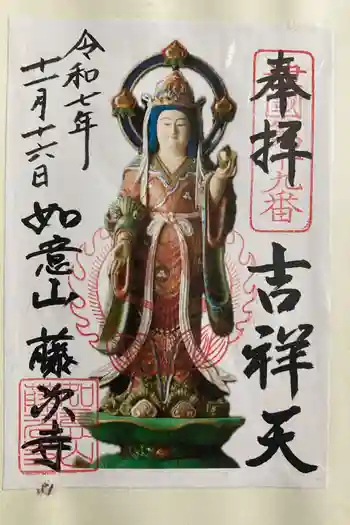 奉拝
九番
吉祥天
令和七年
十一月十六日
如意山 藤次寺